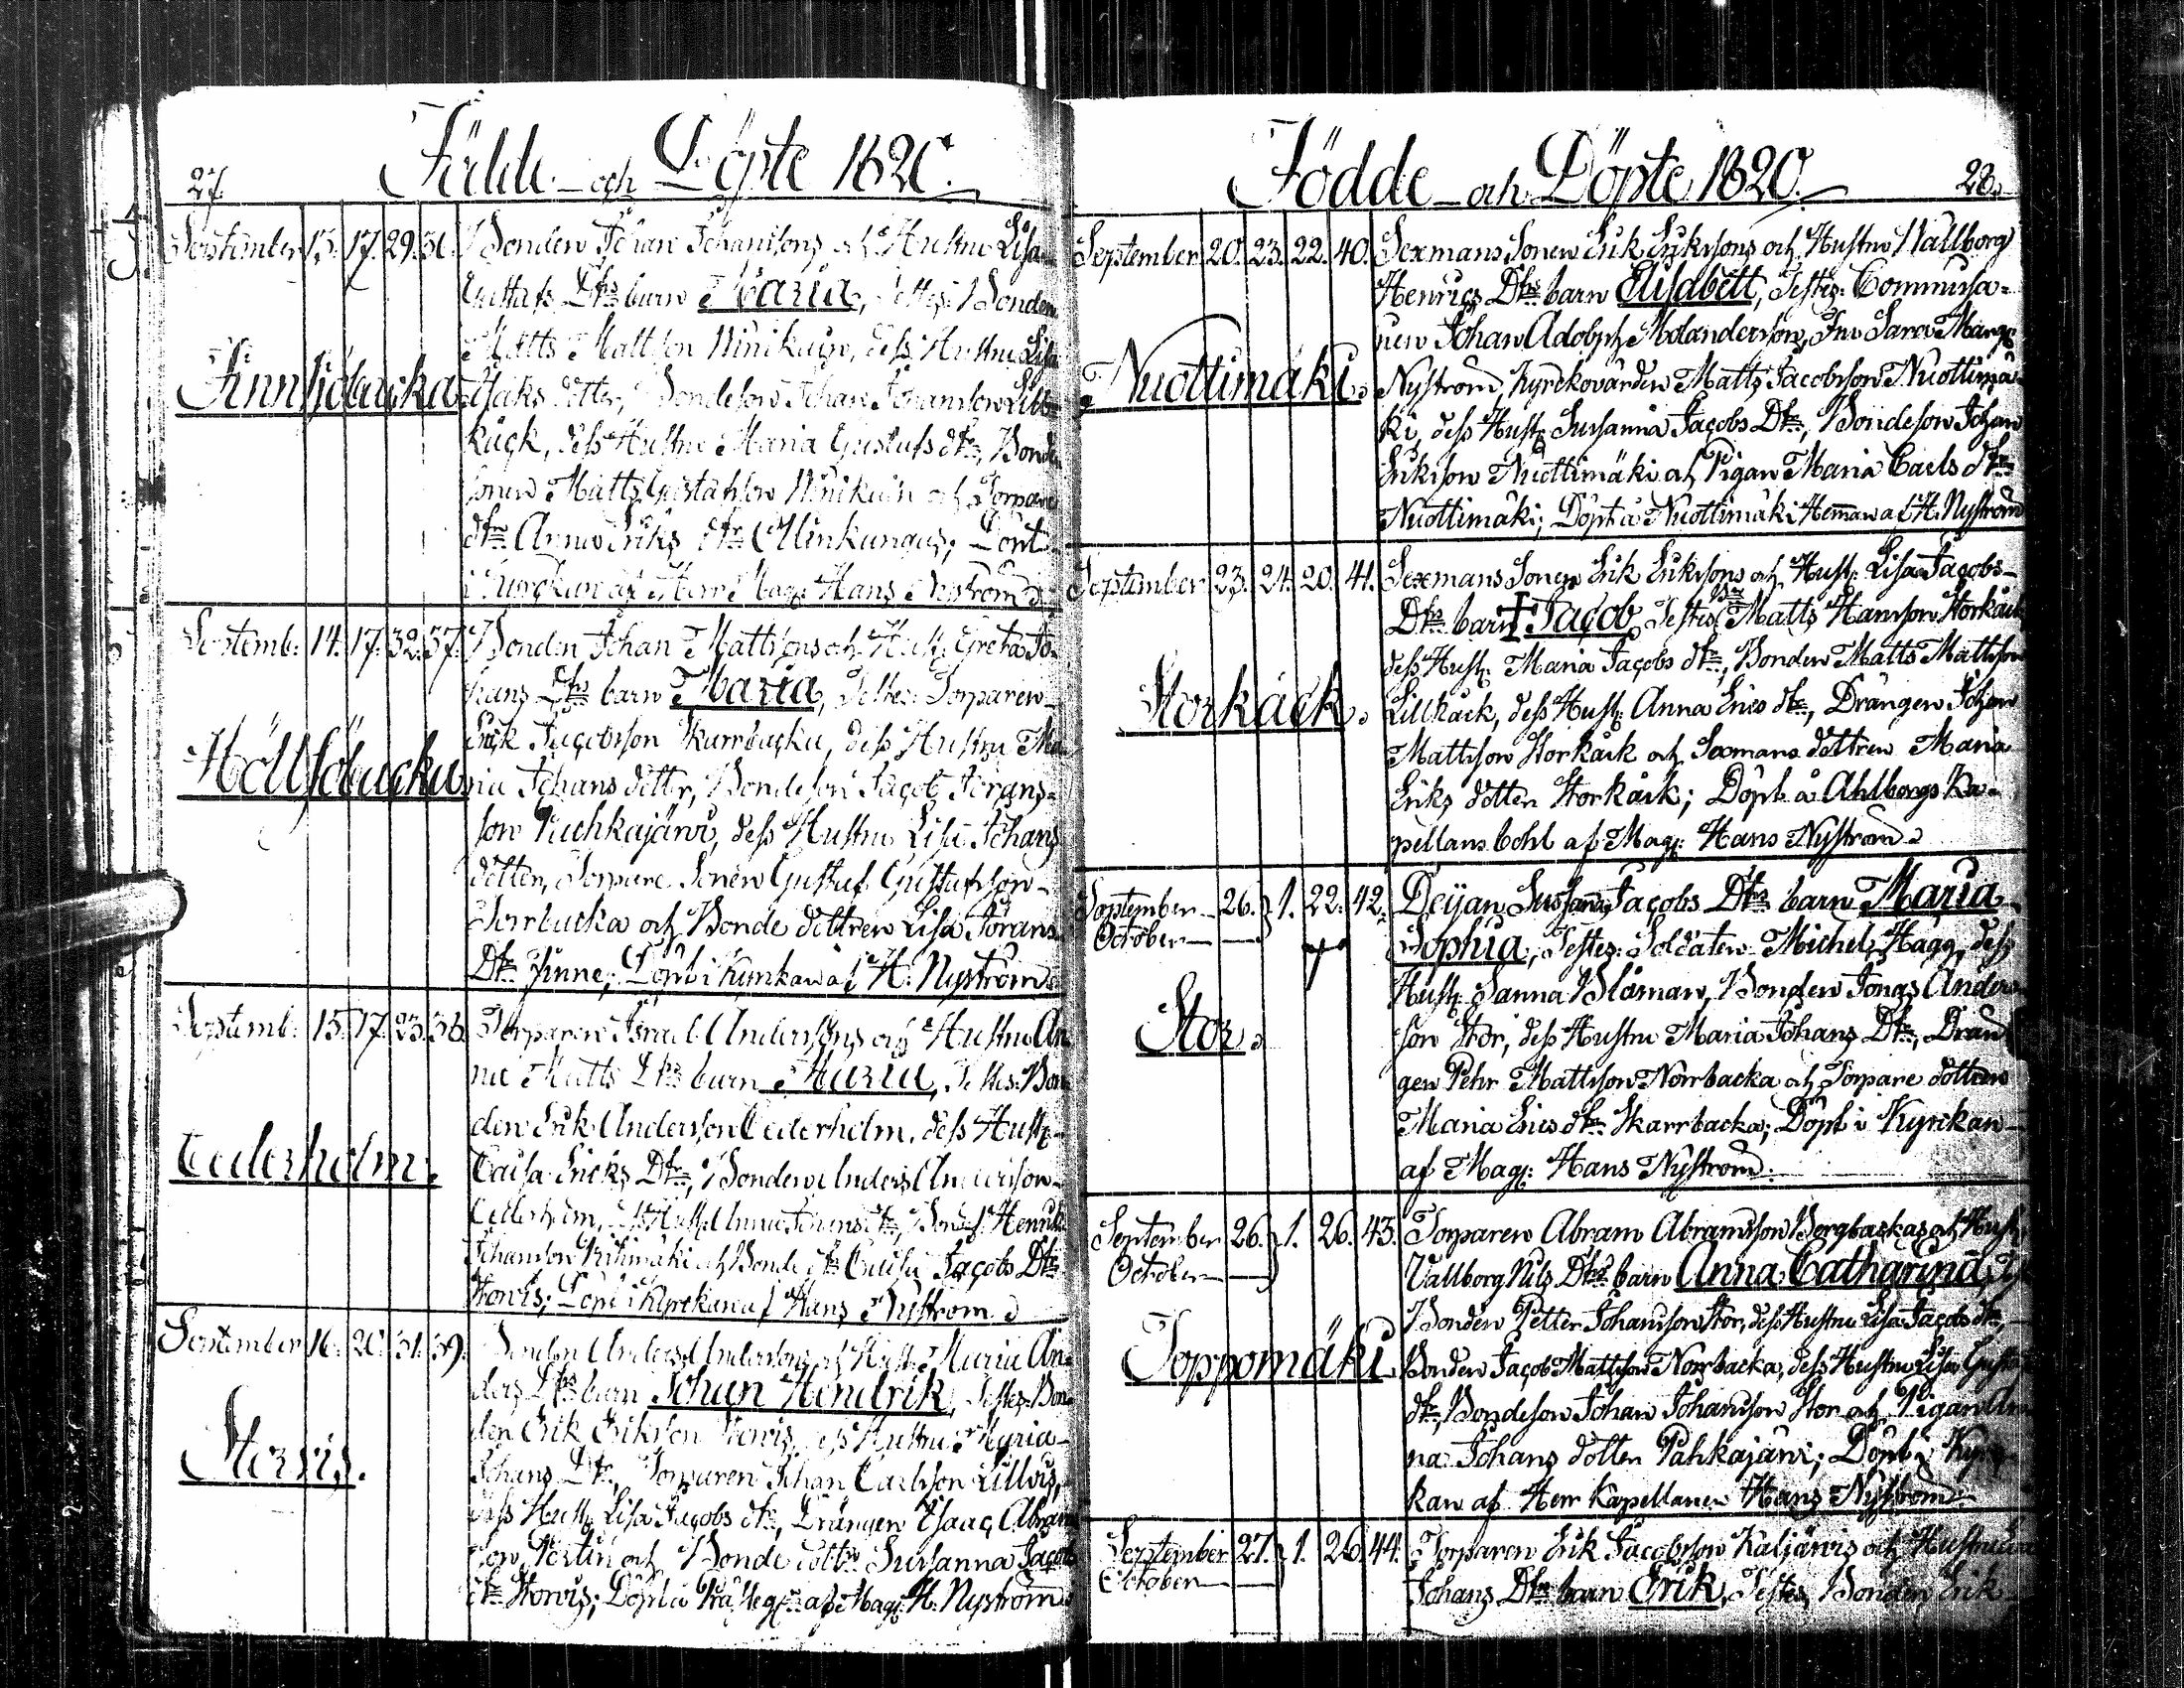 27.
Födde och Döpte 1820.
September 15. 17. 29. 36. Bonden Johan Johanssons och Hustru Lisa
Gustafs Dtrs barn Maria, Testes: Bonden
Matts Mattsson Winikain, dess Hustru Lisa
Finnsjöbacka Isaks dotter, Bondeson Johan Johansson Lill-
käck, dess Hustru Maria Gustafs dtr, Bonde
sonen Matts Gustafsson Winikain och Torpare
dtr Anna Eriks dtr Allinkangas; Döpt
i Kyrckan af Herr Mag: Hans Nyström
Septemb: 14. 17. 32. 37. Bonden Johan Mattssons och Hust: Greta Jo-
hans Dtrs barn Maria, Testes: Torparen
Erik Jacobsson Skarrbacka, dess Hustru Ma-
Höllsöbacka ria Johans dotter, Bondeson Jacob Jörans-
son Puchkajärvi, dess Hustru Lisa Johans
dotter, Torpare Sonen Gustaf Gustafsson
Norrbacka och Bonde dottren Lisa Jörans
Dtr Finne; Döpt i Kyrckan af H. Nyström
Septemb: 15. 17. 23. 38. Torparen Israel Anderssons och Hustru An
na Matts Dtrs barn Maria, Testes: Bon
den Erik Andersson Cederholm, dess Hustr:
Cederholm. Caisa Ericks Dtr, Bonden Anders Andersson
Cederholm, dess Hust: Anna Jörans dtr, Bondes: Henrik
Johansson Riihimäki och Bonde dtr Caisa Jacobs Dtr
Storvis; Döpt i Kyrckan af Hans Nyström
September 16. 20. 31. 39. Bonden Anders Anderssons och Hust: Maria An
ders Dtrs barn Johan Hendrik, Testes: Bon
den Erik Eriksson Storvis, dess Hustru Maria
Storvis. Johans Dtr, Torparen Johan Carlsson Lillvis,
dess Hust: Lisa Jacobs dtr, Drängen Isaac Abram
son Pertin och Bonde dottr Susanna Jacobs
dtr Storvis; Döpt af Mag: H. Nyström
Födde och Döpte 1820.
28.
September 20. 23. 22. 40. Sexmans Sonen Erik Erikssons och Hustru Wallborg
Henrics Dtrs barn Elisabett, Testes: Commissa=
rien Johan Adolph Molandersson, Fru Sara Marg:
Nuottimäki. Nyström, Kyrckovärden Matts Jacobsson Nuottimä-
ki, dess Hust: Susanna Jacobs Dtr, Bondeson Johan
Eriksson Nuottimäki och Pigan Maria Carls dtr
Nuottimäki; Döpt å Nuottimäki Hemman af H. Nyström
September 23. 24. 20. 41. Sexmans Sonen Erik Erikssons och Hust: Lisa Jacobs-
Dtrs barn † Jacob, Testes: Bn Matts Hansson Storkäck
dess Hust: Maria Jacobs dtr, Bonden Matts Mattsson
Storkäck. Lillkäck, dess Hust: Anna Erics dtr, Drängen Johan
Mattsson Storkäck och Sexmans dottren Maria
Eriks dotter Storkäck; Döpt å Ahlbergs Ka-
pellans bohl af Mag: Hans Nyström
September 26. } 1. 22. 42. Deijan Susanna Jacobs Dtrs barn Maria
October — Sophia, Testes: Soldaten Michel Hägg, dess
Hust: Sanna Blåman, Bonden Jonas Anders
Stor. son Stor, dess Hustru Maria Johans Dtr, Drän
gen Pehr Mattsson Norrbacka och Torpare dottren
Maria Erics dtr Skarrbacka; Döpt i Kyrckan
af Mag: Hans Nyström.
September 26. } 1. 26. 43. Torparen Abram Abramsson Bergbackas och Hust:
October — Wallborg Nils Dtrs barn Anna Catharina,
Bonden Petter Johansson Stor, dess Hustru Lisa Jacobs dtr,
Toppomäki Bonden Jacob Mattsson Norrbacka, dess Hustru Lisa Gust
dtr, Bondeson Johan Johansson Stor och Pigan An
na Johans dotter Pahkajärvi; Döpt i Kyrc
kan af Herr Kapellanen Hans Nyström
September 27. } 1. 26. 44. Torparen Erik Jacobsson Kaljärvis och Hustru
October — Johans Dtrs barn Erik, Testes, Bonden Erik